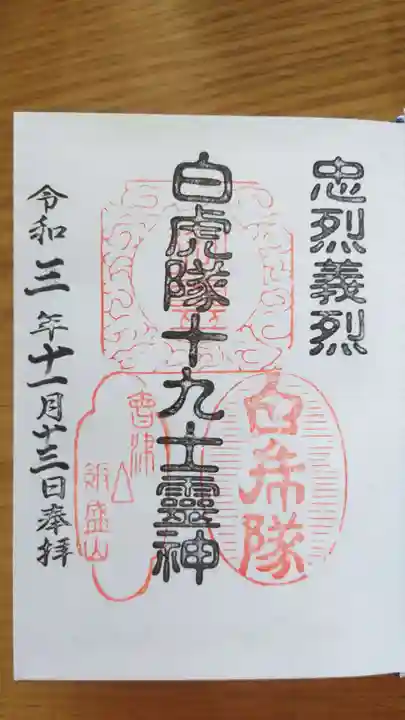 忠烈義烈
白虎隊十九士靈神
白希隊
會津
飯盛山
令和三年十一月十三日奉拝